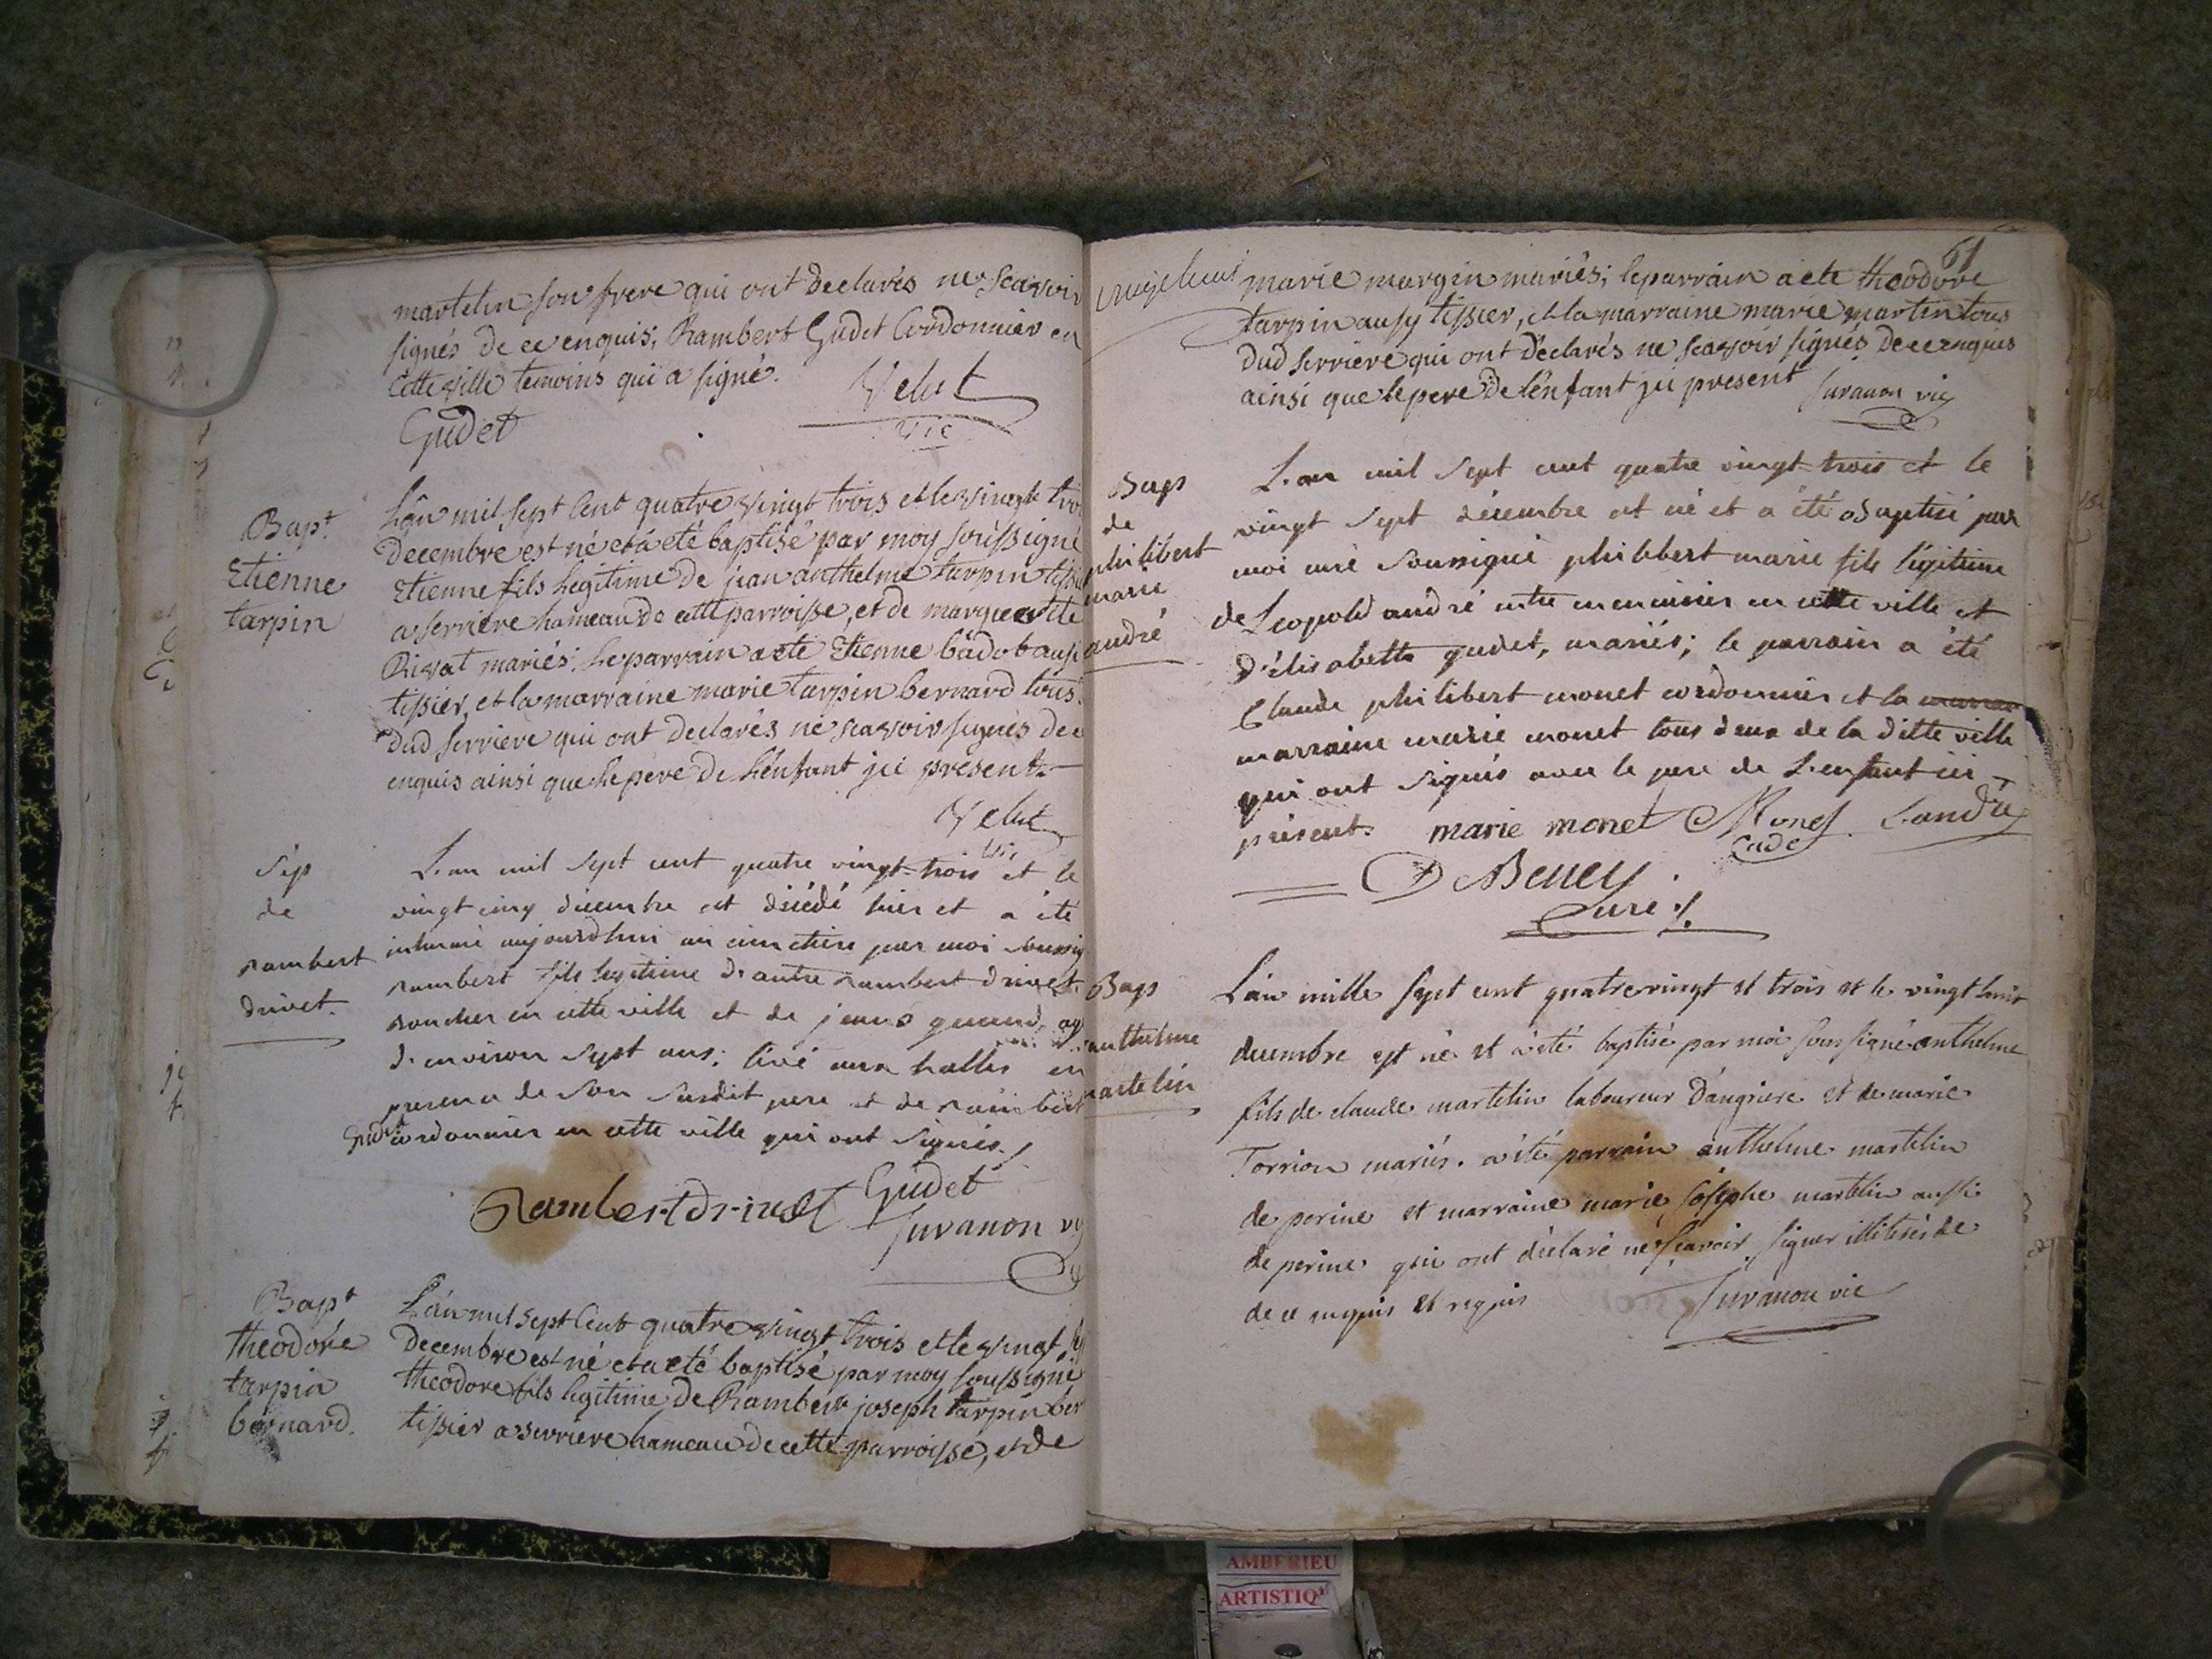 martelin son frere qui ont declarés ne scavoir
signés de ce enquis; Rambert Gudet Cordonnier en
cette ville temoins qui a signé.
Velut
Gudet
vic
Bapt
Etienne
tarpin
Lân mil sept cent quatre vingt trois et le vingt troi
decembre est né et à eté baptisé par moy soussigné
Etienne fils legitime de jean anthelme tarpin tissi
a serriere hameau de cette parroisse, et de marguerite
Rivat mariés; le parrain a eté Etienne bâdot aussi
tissier, et la marraine marie tarpin bernard tous
dud serriere qui ont declarés ne scavoir signés de c
enquis ainsi que le pere de l'enfant jci present.
Velut
vic
Sep
de
rambert
drivet.
L'an mil sept cent quatre vingt-trois et le
vingt cinq décembre est décédé hier et a été
inhumé aujourdhui au cimetière par moi soussig
rambert fils legitime d'autre rambert drivet
boucher en cette ville et de jeanne
d'environ sept ans; levé aux halles en
presence de son susdit pere et de rambert
gudet cordonnier en cette ville qui ont signés.
Rambert drivet Gudet
Juvanon vic
Bapt
theodore
tarpin
bernard.
Lân mil sept cent quatre vingt trois et le vingt
decembre est né et a eté baptisé par moy soussigné
theodore fils legitime de Rambert joseph tarpin ber
tissier a serriere hameau de cette parroisse, et de
61
marie margin mariés; le parrain a eté theodore
tarpin aussy tissier, et la marraine marie martin tous
dud serriere qui ont declarés ne scavoir signés de ce enquis
ainsi que le pere de l'énfant jci present Juvanon vic
Bap
de
philibert
marie
andré
L'an mil sept cent quatre vingt-trois et le
vingt sept décembre est né et a été baptisé par
moi curé soussigné philibert marie fils légitime
de Leopold andré entre menuisier en cette ville et
d'élisabeth gudet, mariés; le parrain a été
Claude philibert monet cordonnier et la marrai
marraine marie monet tous deux de la ditte ville
qui ont signés avec le pere de L'enfant ici
présent. marie monet Monet Landré
Cadet
Curé
Bap
anthelme
martelin
L'an mille sept cent quatrevingt et trois et le vingt huit
decembre est né et a été baptisé par moi soussigné anthelme
fils de claude martelin laboureur d'angriere et de marie
Torrion mariés. a été parrain anthelme martelin
de porine et marraine marie josephe martelin aussi
de porine qui ont déclaré ne scavoir signer illiterés de
de ce enquis et requis Juvanon vic
AMBERIEU
ARTISTIQ